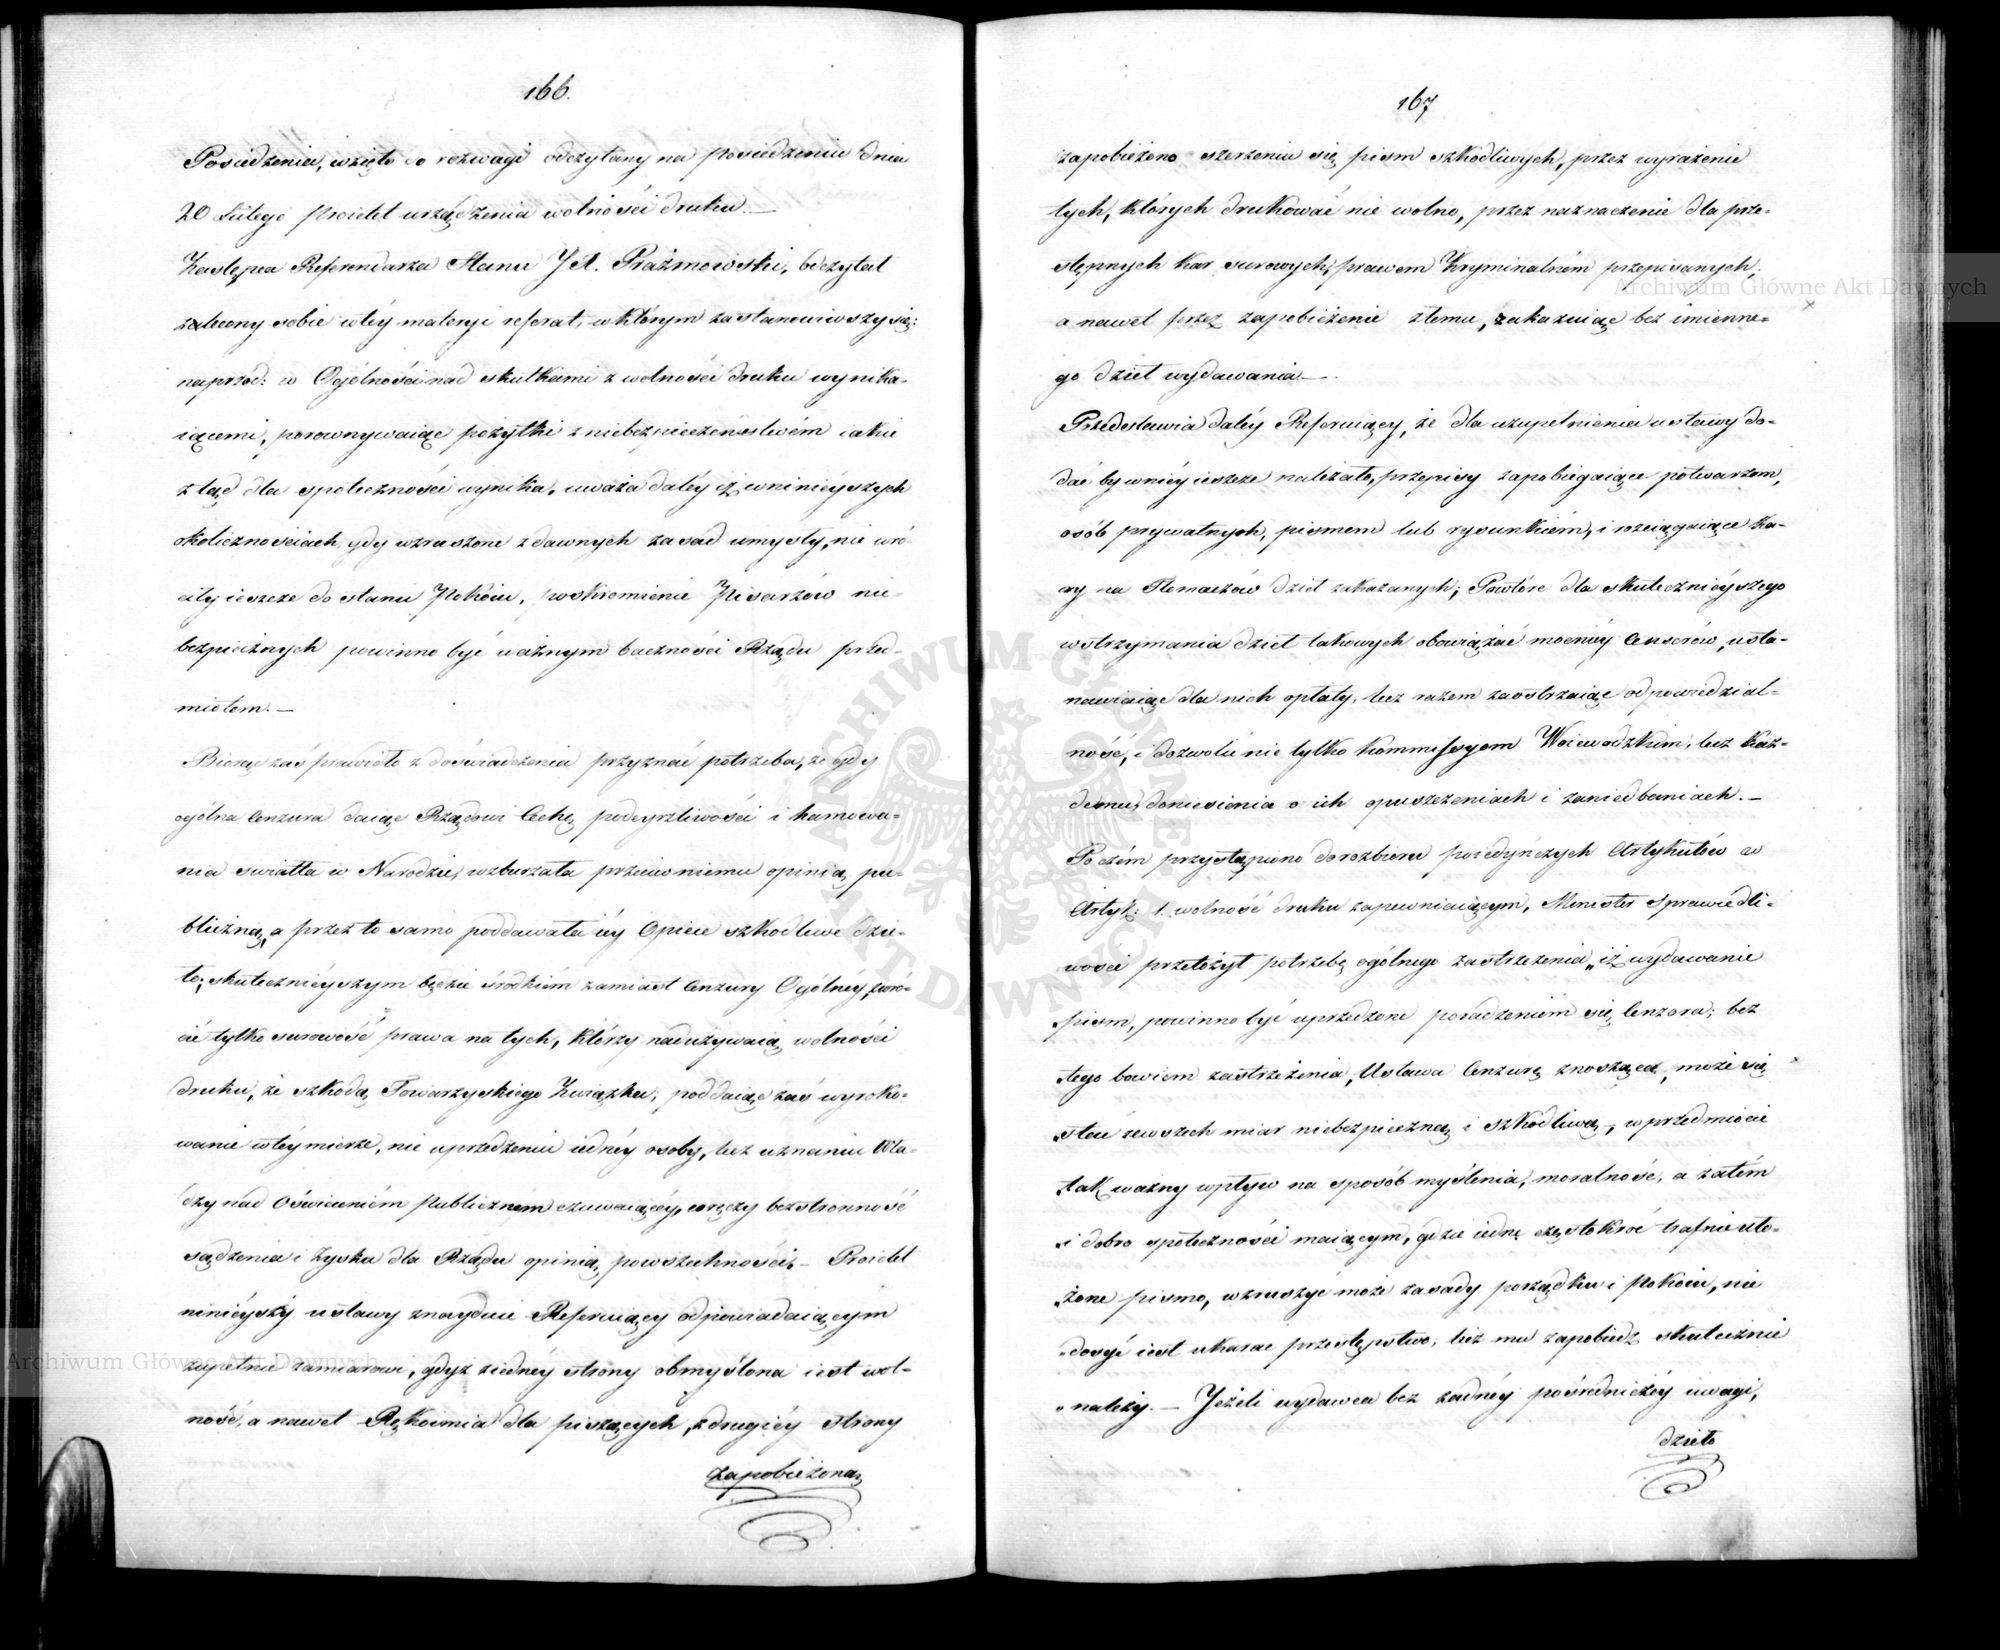 166.
Posiedzenia, wzięto do rozwagi odczytany na posiedzeniu dnia
20 Lutego Proiekt urządzenia wolności druku. —
Zastępca Referendarza Stanu JX. Prażmowski, odczytał
zalecony sobie w téy materyi referat, w którym zastanowiwszy się:
naprzod: w Ogólności nad skutkami z wolności druku wynika-
iącemi, porownywaiąc pożytki z niebezpieczeństwém iakie
ztąd dla społeczności wynika, uważa daléy iż w ninieyszych
okolicznościach, gdy wzruszone z dawnych zasad umysły, nie wró-
ciły ieszcze do stanu Pokoiu, poskromienie Pisarzów nie-
bezpiecznych powinno być ważnym baczności Rządu przed-
miotem. —
Biorąc zaś prawidło z doświadczenia przyznać potrzeba, że gdy
ogólna Cenzura daiąc Rządowi Cechę podeyrzliwości i hamowa-
nia swiatła w Narodzie, wzburzała przeciwniemu opinią pu-
bliczną, a przez to samo poddawała iéy Opiece szkodliwe dzie-
ło; skutecznieyszym będzie środkiém zamiast Cenzury Ogólnéy, zwró-
cić tylko surowość prawa na tych, którzy nadużywaią wolności
druku, ze szkodą Towarzyskiego Związku; poddaiąc zaś wyroko-
wanie w téy mierze, nie uprzedzeniu iednéy osoby, lecz uznaniu Wła-
dzy nad Oświeceniém Publicznem czuwaiącéy, ręczy bezstronność
sądzenia i zyska dla Rządu opinią powszechności. — Proiekt
ninieyszy ustawy znayduie Referuiący odpowiadaiącym
zupełnie zamiarowi, gdyż z iednéy strony obmyślona iest wol-
ność, a nawet Rękoimia dla piszących, z drugiéy strony
zapobieżono
167
zapobieżono szerzeniu się pism szkodliwych, przez wyrażenie
tych, których drukować nie wolno, przez naznaczenie dla prze-
stępnych kar surowych, prawem Kryminalném przepisanych,
a nawet przez zapobieżenie złemu, zakazuiąc bezimienne-
go dzieł wydawania —.
Przedstawia daléy Referuiący, że dla uzupełnienia ustawy do-
dać by w niéy ieszcze należało, przepisy zapobiegaiące potwarzom,
osób prywatnych, pismem lub rysunkiém, i rozciągaiące ka-
ry na Tłomaczów dzieł zakazanych; Powtóre dla skutecznieyszego
wstrzymania dzieł takowych obowiązać mocniéy Censorów, usta-
nawiaiąc dla nich opłaty, lecz razem zaostrzaiąc odpowiedzial-
ność, i dozwolić nie tylko Kommissyom Woiewodzkim, lecz każ-
demu, doniesienia o ich opuszczeniach i zaniedbaniach. —
Poczém przystąpiono do rozbioru poiedyńczych Artykułów w
Artyk: 1. wolność druku zapewniaiącym, Minister Sprawiedli-
wości przełożył potrzebę ogólnego zastrzeżenia „iż wydawanie
„pism, powinno być uprzedzone poradzeniém się Cenzora; bez
„tego bowiem zastrzeżenia, Ustawa Cenzurę znosząca, może się
„stać ze wszech miar niebezpieczną i szkodliwą, w przedmiocie
„tak ważny wpływ na sposób myślenia, moralność, a zatém
„i dobro społeczności maiącym, gdzie iedno częstokroć trafnie uło-
„żone pismo, wzruszyć może zasady porządku i Pokoiu, nie
„dosyć iest ukarać przestępstwo, lecz mu zapobiedz skutecznie
„należy. — Jeżeli wydawca bez żadnéy pośredniczéy uwagi,
dzieło
Archiwum Główne Akt Dawnych
Archiwum Główne Akt Dawnych
ARCHIWUM GŁÓWNE AKT DAWNYCH